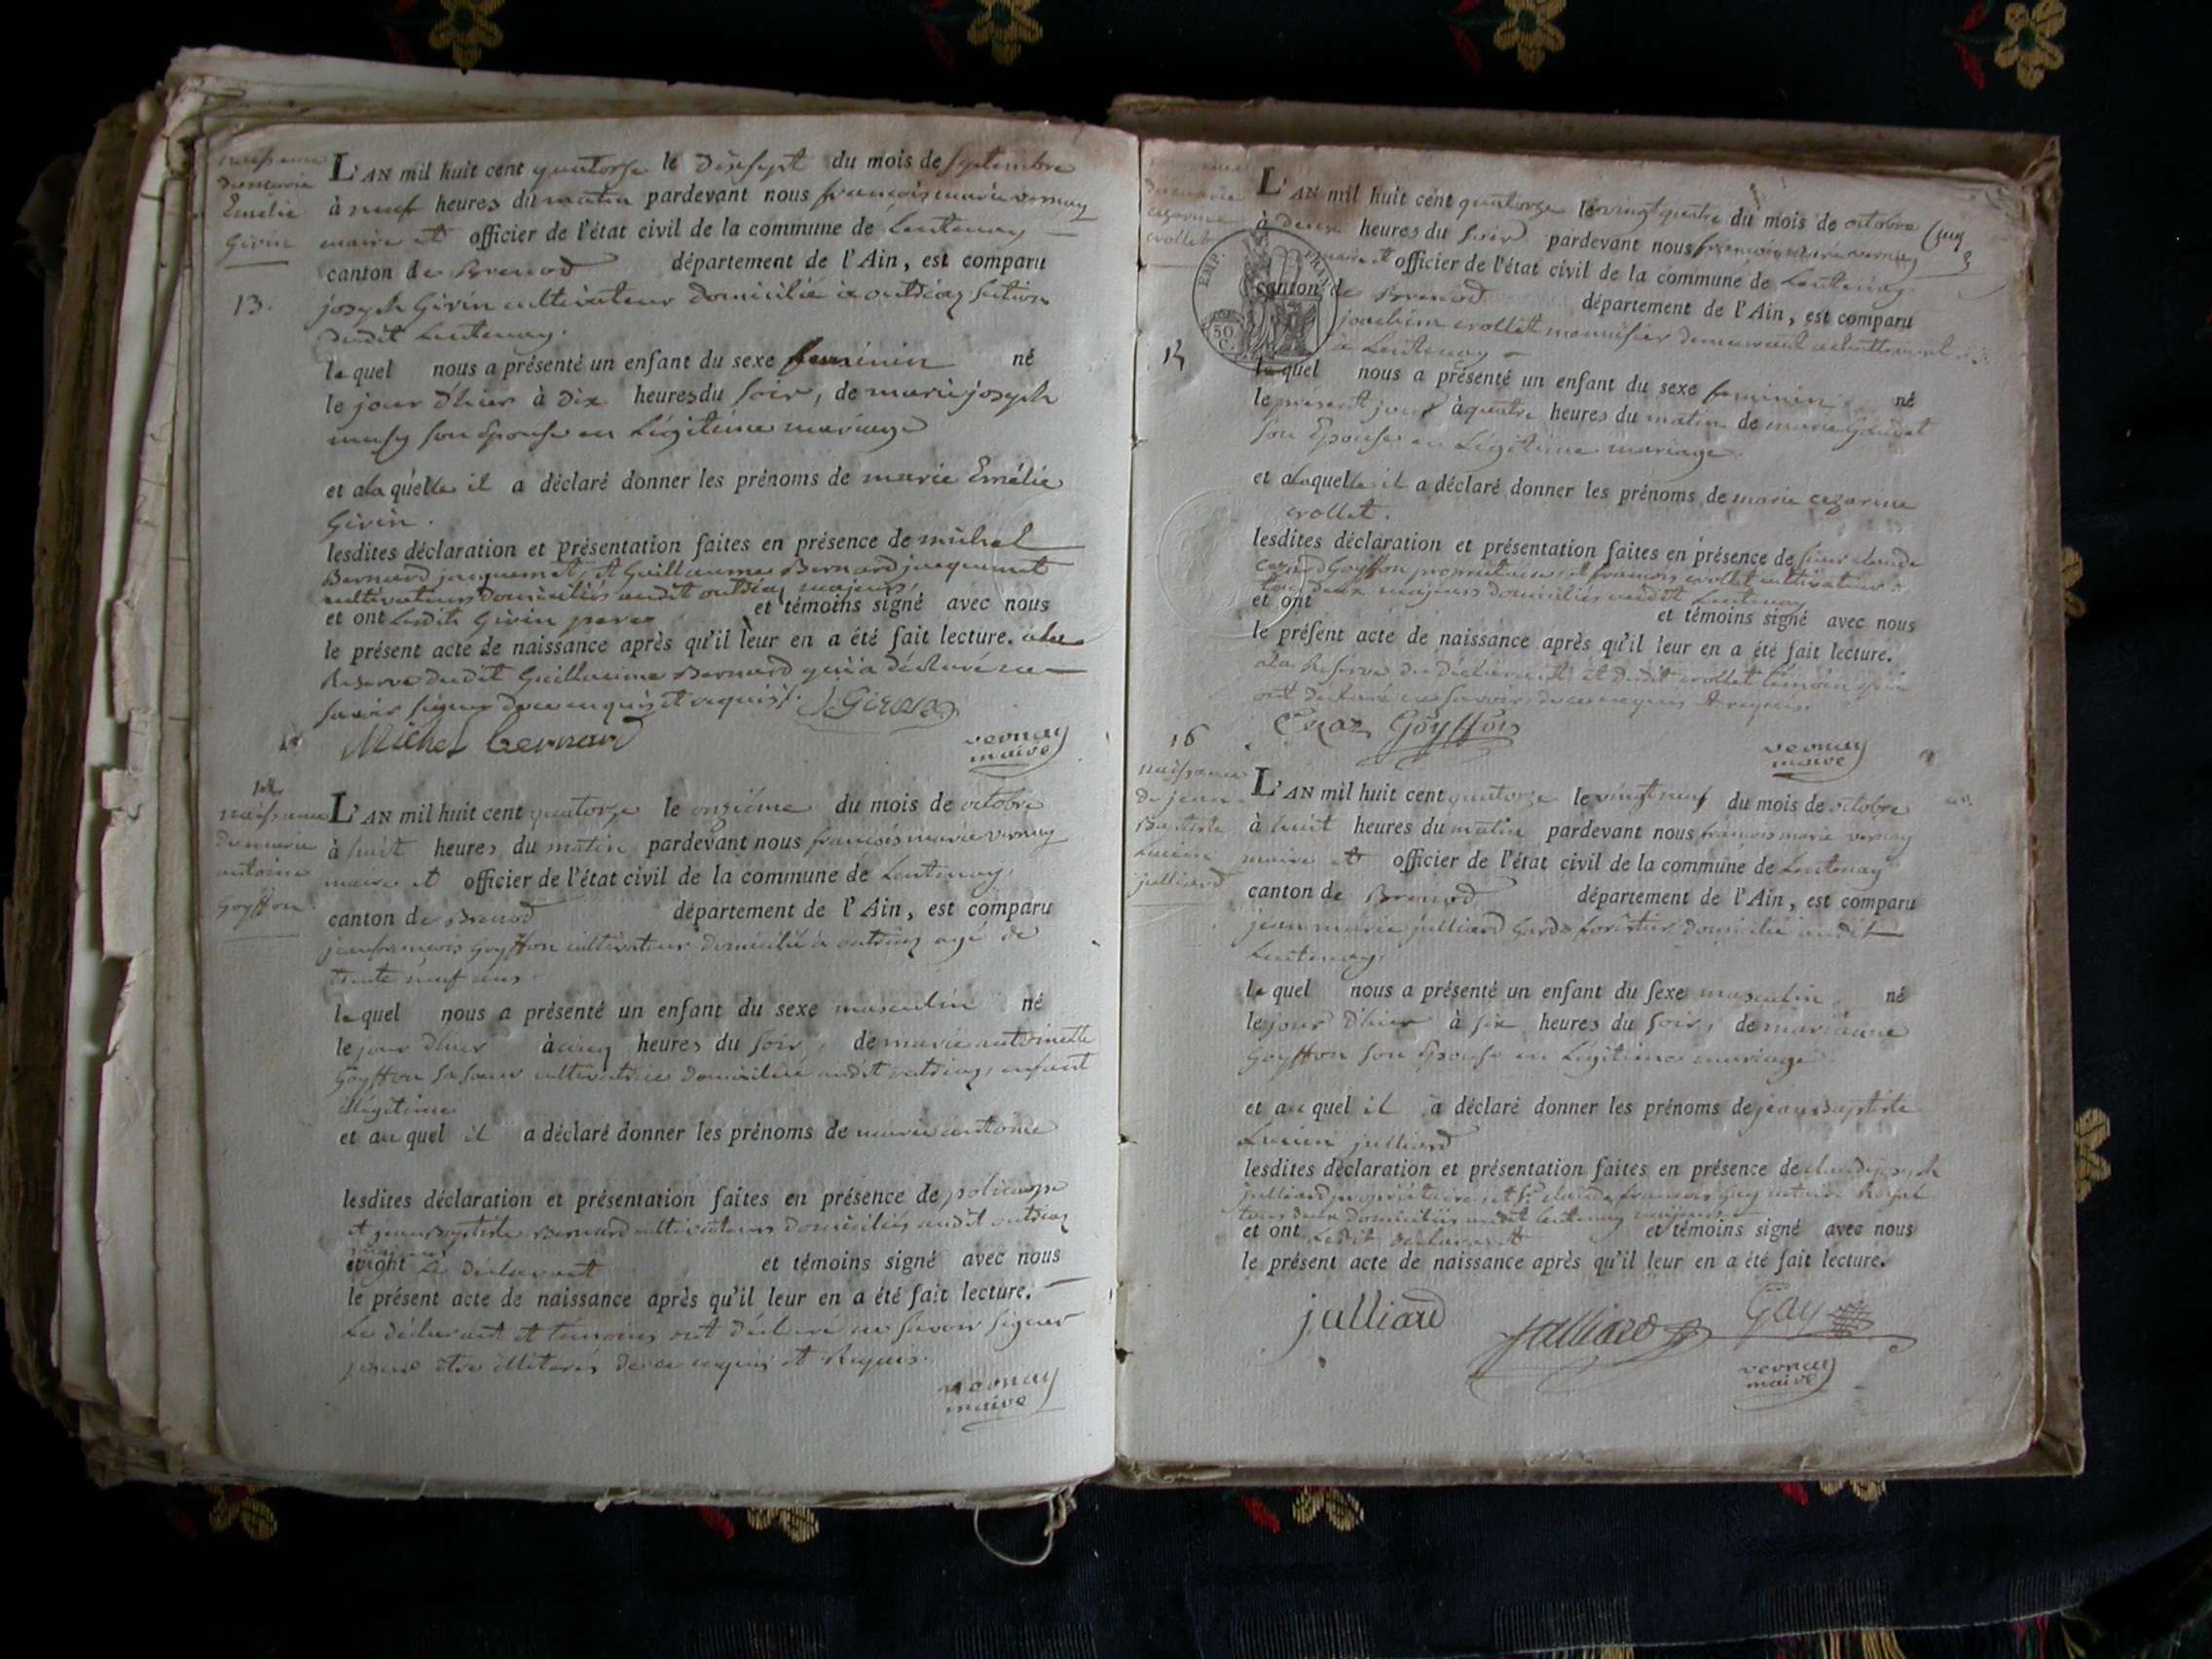 naissance
de marie
Emelie
Girin
13.
L'AN mil huit cent quatorse le dixsept du mois de septembre
à neuf heures du matin pardevant nous francois marie vernay
maire et officier de l'état civil de la commune de Lentenay
canton de Brenod département de l'Ain, est comparu
joseph Girin cultivateur domicilié à outriaz section
dudit Lentenay.
lequel nous a présenté un enfant du sexe feminin né
le jour d'hier à dix heures du soir, de marie joseph
son Epouse en Légitime mariage
et a la quelle il a déclaré donner les prénoms de marie Emélie
Girin.
lesdites déclaration et présentation faites en présence de michel
Bernard jacquemet, et Guillaume Bernard jacquemet
cultivateurs domiciliés audit outriaz majeurs,
et ont ledit Girin pere et témoins signé avec nous
le présent acte de naissance après qu'il leur en a été fait lecture. a la
Reserve dudit Guillaume Bernard qui a déclaré ne
savoir signer de ce enquis et requis.
J. Girin
Michel bernard
vernay
maire
14
naissance
de marie
antoine
goyffon
L'AN mil huit cent quatorze le onzième du mois de octobre
à huit heures du matin pardevant nous francois marie vernay
maire et officier de l'état civil de la commune de Lentenay,
canton de Brenod département de l'Ain, est comparu
jean francois Goyffon cultivateur domicilié à outriaz agé de
trente neuf ans.
lequel nous a présenté un enfant du sexe masculin né
le jour d'hier à cinq heures du soir, de marie antoinette
Goyffon sa soeur cultivatrice domiciliée audit outriaz, enfant
illégitime
et au quel il a déclaré donner les prénoms de marie antoine
lesdites déclaration et présentation faites en présence de policarpe
et jean Baptiste Bernard cultivateurs domiciliés audit outriaz
majeurs
et ont le déclarant et témoins signé avec nous
le présent acte de naissance après qu'il leur en a été fait lecture.
Le déclarant et témoins ont déclaré ne savoir signer
pour etre illiterés de ce enquis et Requis.
vernay
maire
de marie
cezarine
crollet
15
L'AN mil huit cent quatorze le vingt quatre du mois de octobre
à deux heures du soir pardevant nous francois marie vernay
maire et officier de l'état civil de la commune de Lentenay
canton de Brenod département de l'Ain, est comparu
EMP. FRAN.
50
C.
joachim crollet menuisier demeurant
a Lentenay
lequel nous a présenté un enfant du sexe feminin né
le présent jour à quatre heures du matin de marie
son Epouse en Légitime mariage
et a laquelle il a déclaré donner les prénoms de marie cezarine
crollet.
lesdites déclaration et présentation faites en présence de sieur claude
cezard Goyffon propriétaire, et francois crollet cultivateur
tous deux majeurs domiciliés audit Lentenay
et ont et témoins signé avec nous
le présent acte de naissance après qu'il leur en a été fait lecture.
a la Reserve du déclarant et dudit crollet témoin qui
ont déclaré ne savoir de ce enquis et requis.
Cezar Goÿffon
vernay
maire
16
naissance
de jean
Baptiste
Lucien
julliard
L'AN mil huit cent quatorze le vingt neuf du mois de octobre
à huit heures du matin pardevant nous francois marie vernay
maire et officier de l'état civil de la commune de Lentenay
canton de Brenod département de l'Ain, est comparu
jean marie julliard garde forestier domicilié audit
Lentenay.
lequel nous a présenté un enfant du sexe masculin né
le jour d'hier à six heures du soir, de marianne
Goyffon son Epouse en Légitime mariage
et au quel il a déclaré donner les prénoms de jean Baptiste
Lucien julliard
lesdites déclaration et présentation faites en présence de claude joseph
julliard propriétaire, et Sr. claude francois Gay notaire Royal
tous deux domiciliés audit lentenay majeurs
et ont ledit déclarant et témoins signé avec nous
le présent acte de naissance après qu'il leur en a été fait lecture.
julliard
julliard
Gay
vernay
maire